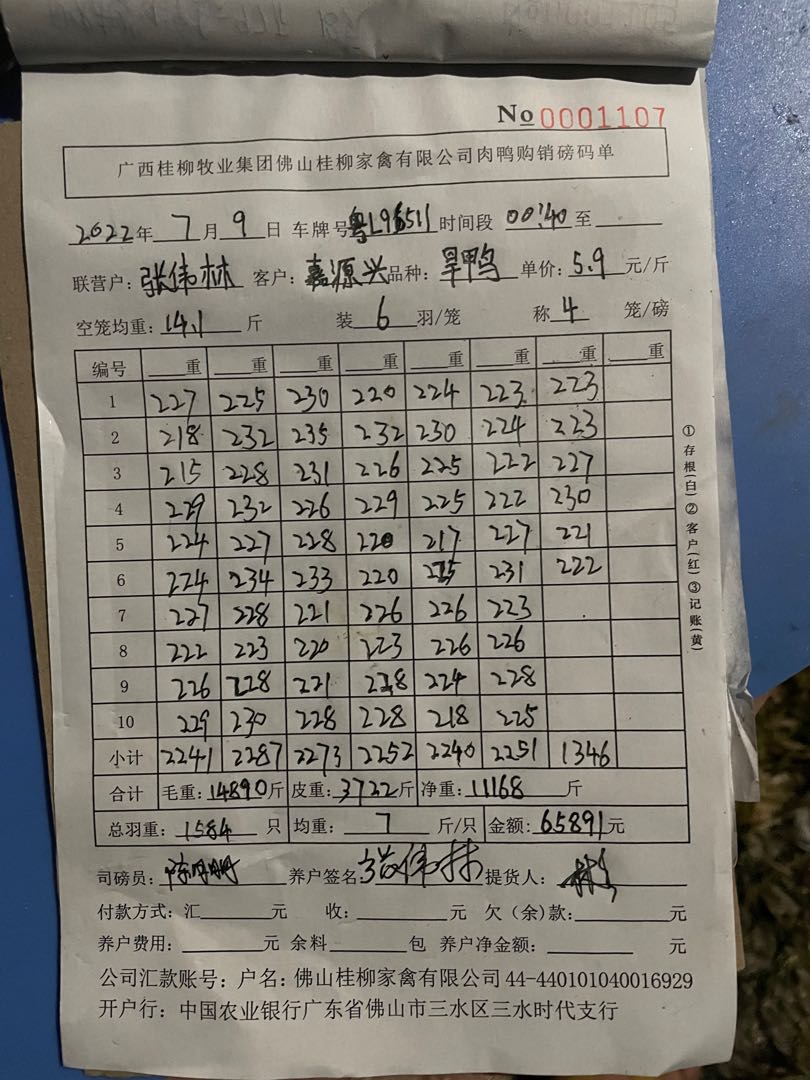 No 0001107
广西桂柳牧业集团佛山桂柳家禽有限公司肉鸭购销磅码单
2022年 7 月 9 日 车牌号粤L96511 时间段 00:40 至
联营户：张伟林 客户：嘉源兴 品种：旱鸭 单价：5.9 元/斤
空笼均重：14.1 斤 装 6 羽/笼 称 4 笼/磅
编号 重 重 重 重 重 重 重 重
1 227 225 230 220 224 223 223
2 218 232 235 232 230 224 223
3 215 228 231 226 225 222 227
4 229 232 226 229 225 222 230
5 224 227 228 220 217 227 221
6 224 234 233 220 225 231 222
7 227 228 221 226 226 223
8 222 223 220 223 226 226
9 226 228 221 228 224 228
10 229 230 228 228 218 225
小计 2241 2287 2273 2252 2240 2251 1346
合计 毛重：14890斤 皮重：3722斤 净重：11168 斤
总羽重：1584 只 均重：7 斤/只 金额：65891元
司磅员： 养户签名：张伟林 提货人：
付款方式：汇 元 收： 元 欠（余）款： 元
养户费用： 元 余料 包 养户净金额： 元
公司汇款账号：户名：佛山桂柳家禽有限公司 44-440101040016929
开户行：中国农业银行广东省佛山市三水区三水时代支行
①存根(白)②客户(红)③记账(黄)